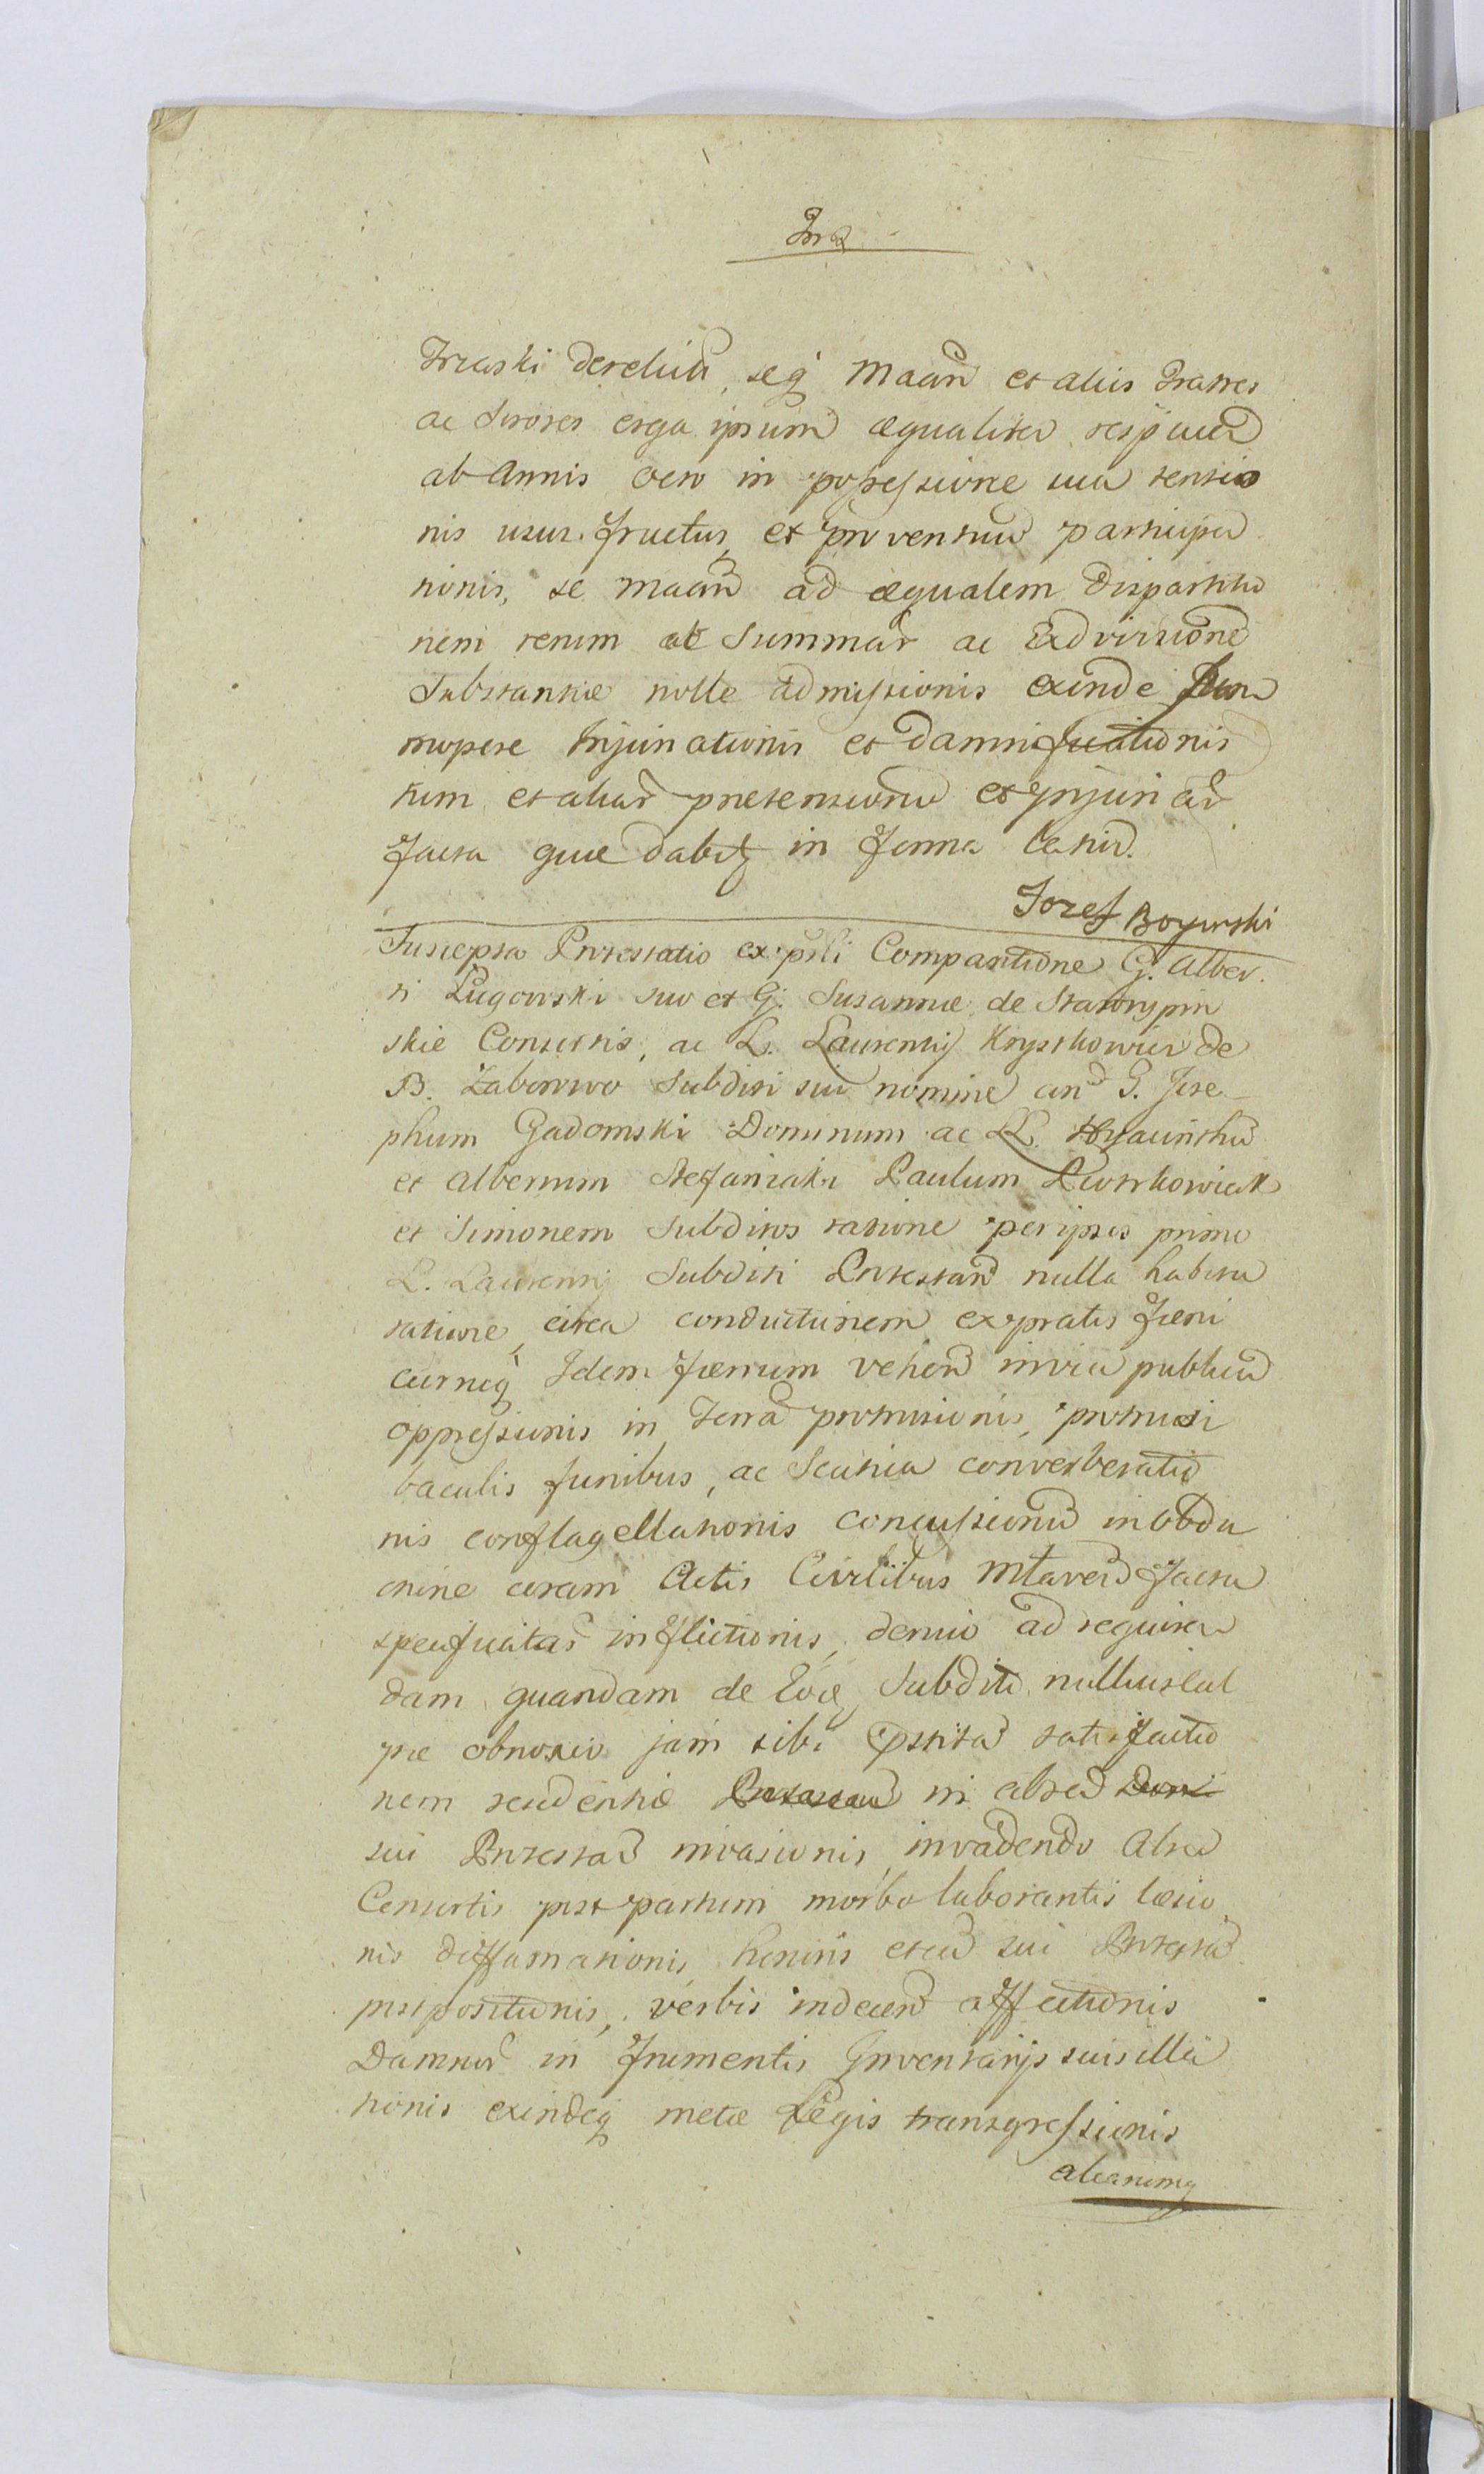 Trzaski derelicta, seq Maan et aliis Fratres
ac Sorores erga ipsum æqualiter
ab Annis octo in possessione sua tentio
nis usus fructus, et proventuum participa
tionis, se Maan ad æqualem dispartitio
nem rerum ac Summar ac Ad divisione
Substantiæ nolle admissionis exinde Sum
mopere Injuriationis et damnificationis
tum et aliar pretensionu et Injuriar
facta quæ dabit in forma
Jozef Boyurski
Suscepta Protestatio ex psli Comparitione G. Alber
ti Lugowski suo et G. Susannæ de Starorypin
skie Consortis, ac L. Laurentij Krystkowicz de
B. Zaborowo Subditi sui nomine con G. Jose
phum Gadomski Dominum ac LL. Hyacinthu
et Albertum Stefaniaki Paulum Piotrkowiak
et Simonem Subditos ratione per ipsos primo
L. Laurentij Subditi Protestan nulla habita
ratione, circa conductionem ex pratis fœni
cumq Idem fœnum vehen in via publica
oppressionis in Terra protrusionis, protrusi
baculis funibus, ac Scutica converberatio
nis conflagellationis concussionu in obdu
ctione coram Actis Civilibus Mlaven facta
specificatar inflictionis, denuo ad requiren
dam quandam de Subdito nullius cul
pæ obnoxio jam sibi satisfactio
nem residentiæ in absen
sui Protestan invasionis, invadendo
Consortis post partum morbo laborantis læsio
nis diffamationis, honoris etia sui Protestan
postpositionis, verbis indecen affectionis
Damnor in frumentis Inventarijs suis illa
tionis exindeq metæ Legis transgressionis